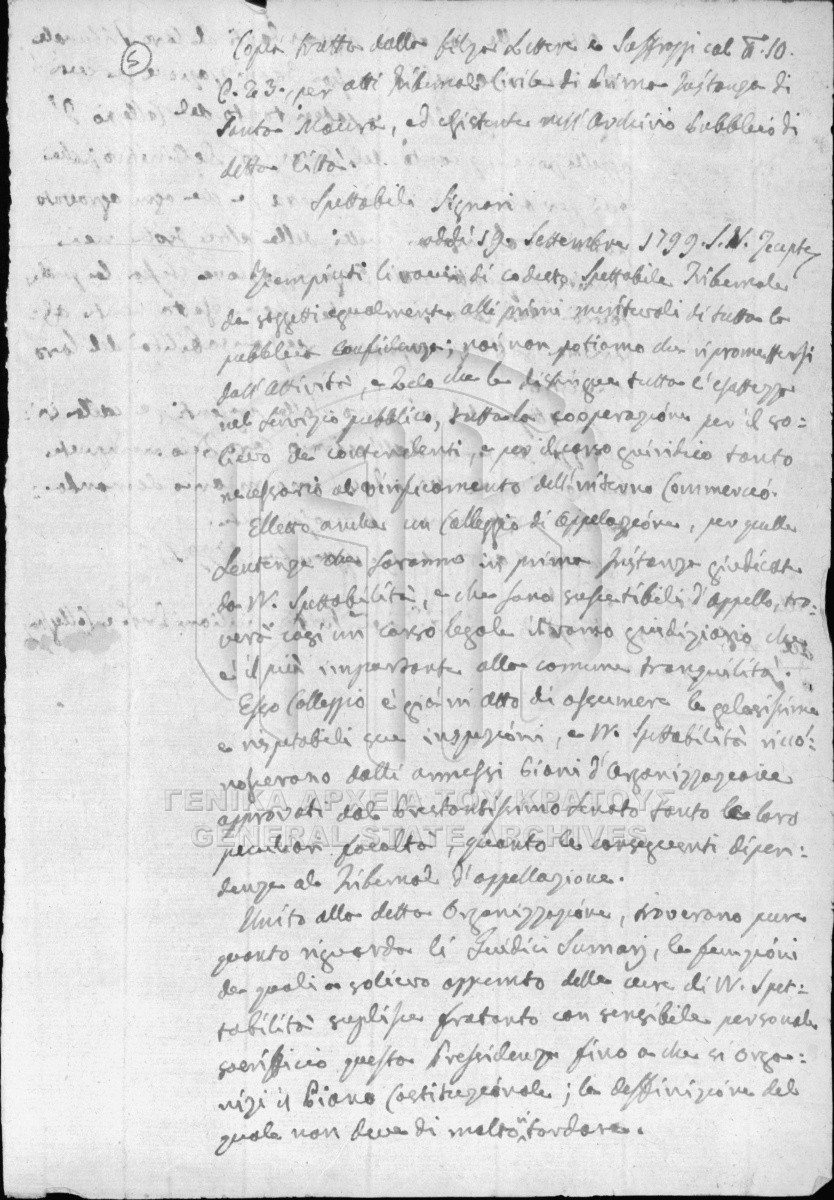 5
Copia tratta dalla filza Lettere e Suffraggi col N. 10.
C. 23., per atti Tribunale Civile di Prima Instanza di
Santa Maura, ed esistente nell'Archivio Pubblico di
detta Città.
Spettabili Signori
addi 19. Settembre 1799. S.N. Recepte
Riempiuti li vacui di codesto Spettabile Tribunale
da soggetti egualmente alli primi meritevoli di tutta la
pubblica confidenza; noi non potiamo che ripromettersi
dall'Attività, e Zelo che la distingue tutta l'esattezza
nel Servizio pubblico, tutta la cooperazione per il so:
lievo de contendenti, e per il corso giuridico tanto
necessario al vivificamento dell'interno Commercio.
Elletto anche un Colleggio di Appelazione, per quelle
Sentenze che saranno in prima Instanza giudicate
da VV. Spettabilità, e che sono suscetibili d'Appello, tro:
verà così un corso legale il ramo giudiziario che
è il più importante alla comune tranquilità.
Esso Colleggio è già in atto di assumere le gelosissime
e rispetabili sue inspezioni, e VV. Spettabilità ricco:
nosceranno dalli annessi Piani d'Organizzazione
approvati dal Prestantissimo Senato tanto le loro
peculiari facoltà, quanto le conseguenti dipen:
denze al Tribunale d'appellazione.
Unito alla detta Organizzazione, troverano pure
quanto riguarda li Giudici Sumarj, le funzioni
de quali a solievo appunto delle cure di VV. Spet:
tabilità suplisce fratanto con sensibile personale
sacrifficio questa Pressidenza fino a che si orga:
nizi il Piano Costituzionale; la deffinizione del
quale non deve di molto tardare.
ΓΕΝΙΚΑ ΑΡΧΕΙΑ ΤΟΥ ΚΡΑΤΟΥΣ
GENERAL STATE ARCHIVES